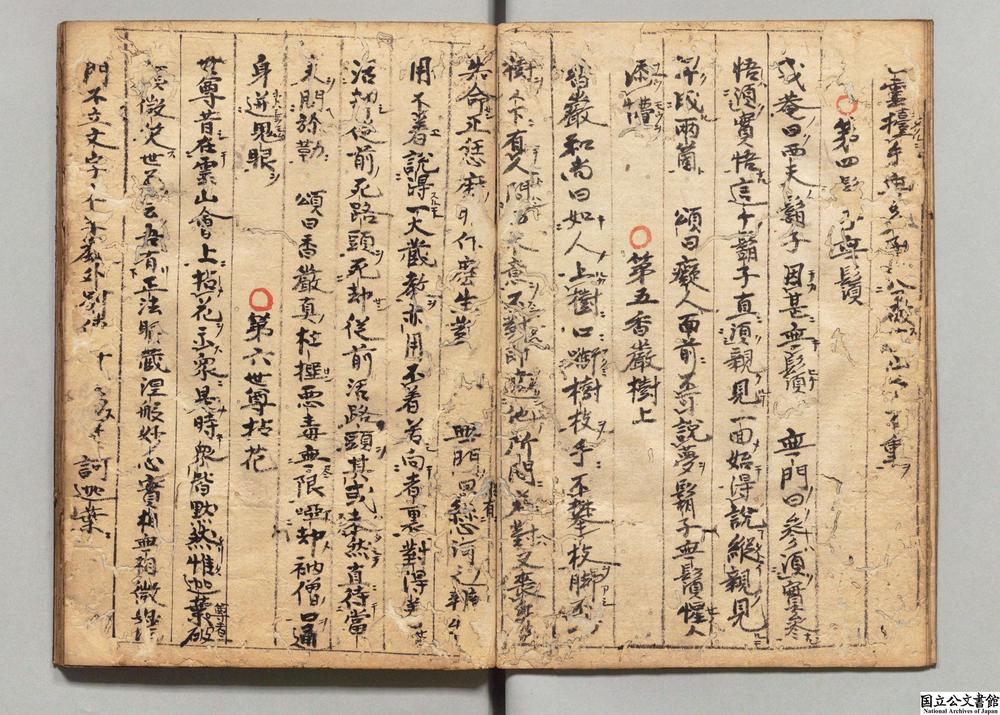 ○第四 子無鬚
或菴曰西天鬍子因甚無鬚 無門曰参須實参
悟須實悟這个鬍子直須親見一面始得説縦親見
成兩箇 頌曰癡人面前不可説夢鬍子無鬚惺人
添懵
○第五香嚴樹上
香嚴和尚曰如人上樹口啣樹枝手不攀枝脚不
樹下有人問 意不對即違他所問若對又喪身
失命正恁麽時作麽生對 無門曰縦有懸河之辨
用不著説得一大蔵教亦用不着若向者裏對得著
活却従前死路頭死却従前活路頭其或未然直待當
来問弥勒 頌曰香嚴真杜撰悪毒無盡限啞却衲僧口通
身迸鬼眼
○第六世尊拈花
世尊昔在霊山會上拈花示衆是時衆皆默然惟迦葉尊者破
顔微笑世尊云吾有正法眼蔵涅般妙心實相無相微妙
門不立文字 教外別傳 訶迦葉
国立公文書館
National Archives of Japan